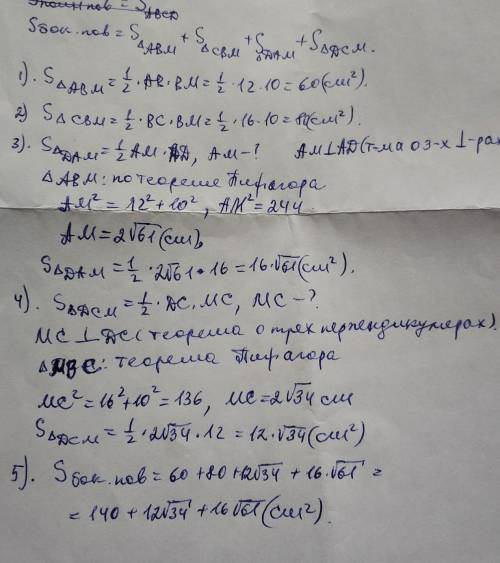 Sбок.пов = S△ABM + S△CBM + S△DAM + S△DCM.
1). S△ABM = 1/2 · AB · BM = 1/2 · 12 · 10 = 60 (см²).
2) S△CBM = 1/2 · BC · BM = 1/2 · 16 · 10 = 80 (см²).
3). S△DAM = 1/2 AM · AD, AM - ? AM ⊥ AD (т-ма о 3-х ⊥-рах
△ABM: по теореме Пифагора
AM² = 12² + 10², AM² = 244
AM = 2√61 (см),
S△DAM = 1/2 · 2√61 · 16 = 16·√61 (см²).
4). S△DCM = 1/2 · DC · MC, MC - ?
MC ⊥ DC (теорема о трех перпендикулярах).
△MBC: теорема Пифагора
MC² = 16² + 10² = 136, MC = 2√34 см
S△DCM = 1/2 · 2√34 · 12 = 12·√34 (см²)
5). Sбок.пов = 60 + 80 + 12√34 + 16·√61 =
= 140 + 12√34 + 16√61 (см²).